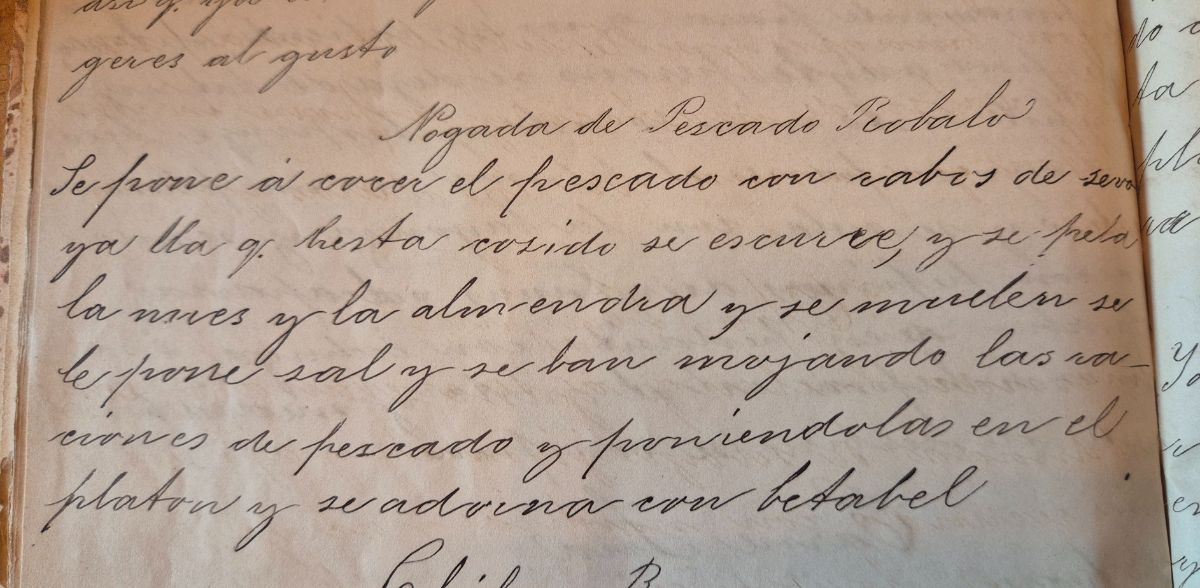 geres al gusto
Nogada de Pescado Robalo
Se pone á cocer el pescado con rabos de sevo
ya lla q. hesta cosido se escurre, y se pela
la nues y la almendra y se muelen se
le pone sal y se ban mojando las ra-
ciones de pescado y poniendolas en el
platon y se adorna con betabel